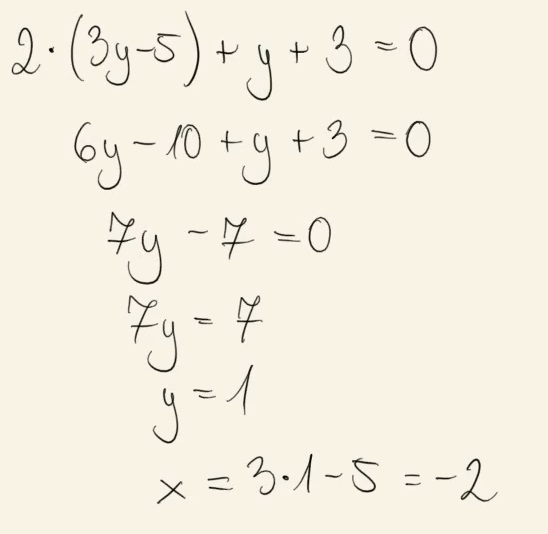 2·(3y-5)+y+3=0
6y-10+y+3=0
7y-7=0
7y=7
y=1
x=3·1-5=-2